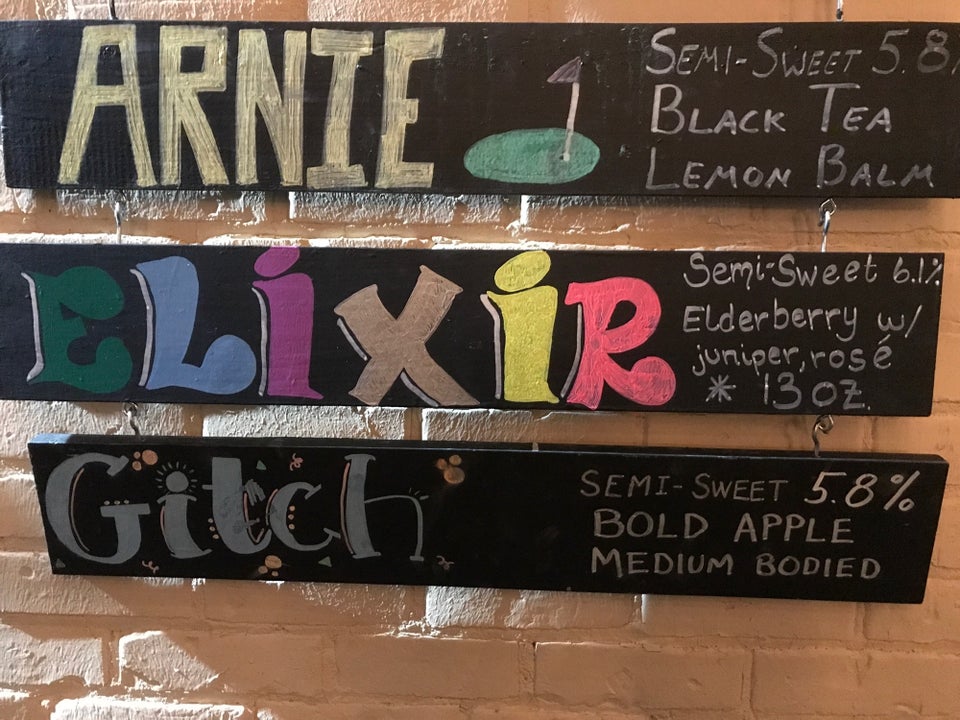 ARNIE
SEMI-SWEET 5.8%
BLACK TEA
LEMON BALM
ELiXiR
Semi-Sweet 6.1%
Elderberry w/
juniper, rosé
* 13 oz.
Gitch
SEMI-SWEET 5.8%
BOLD APPLE
MEDIUM BODIED